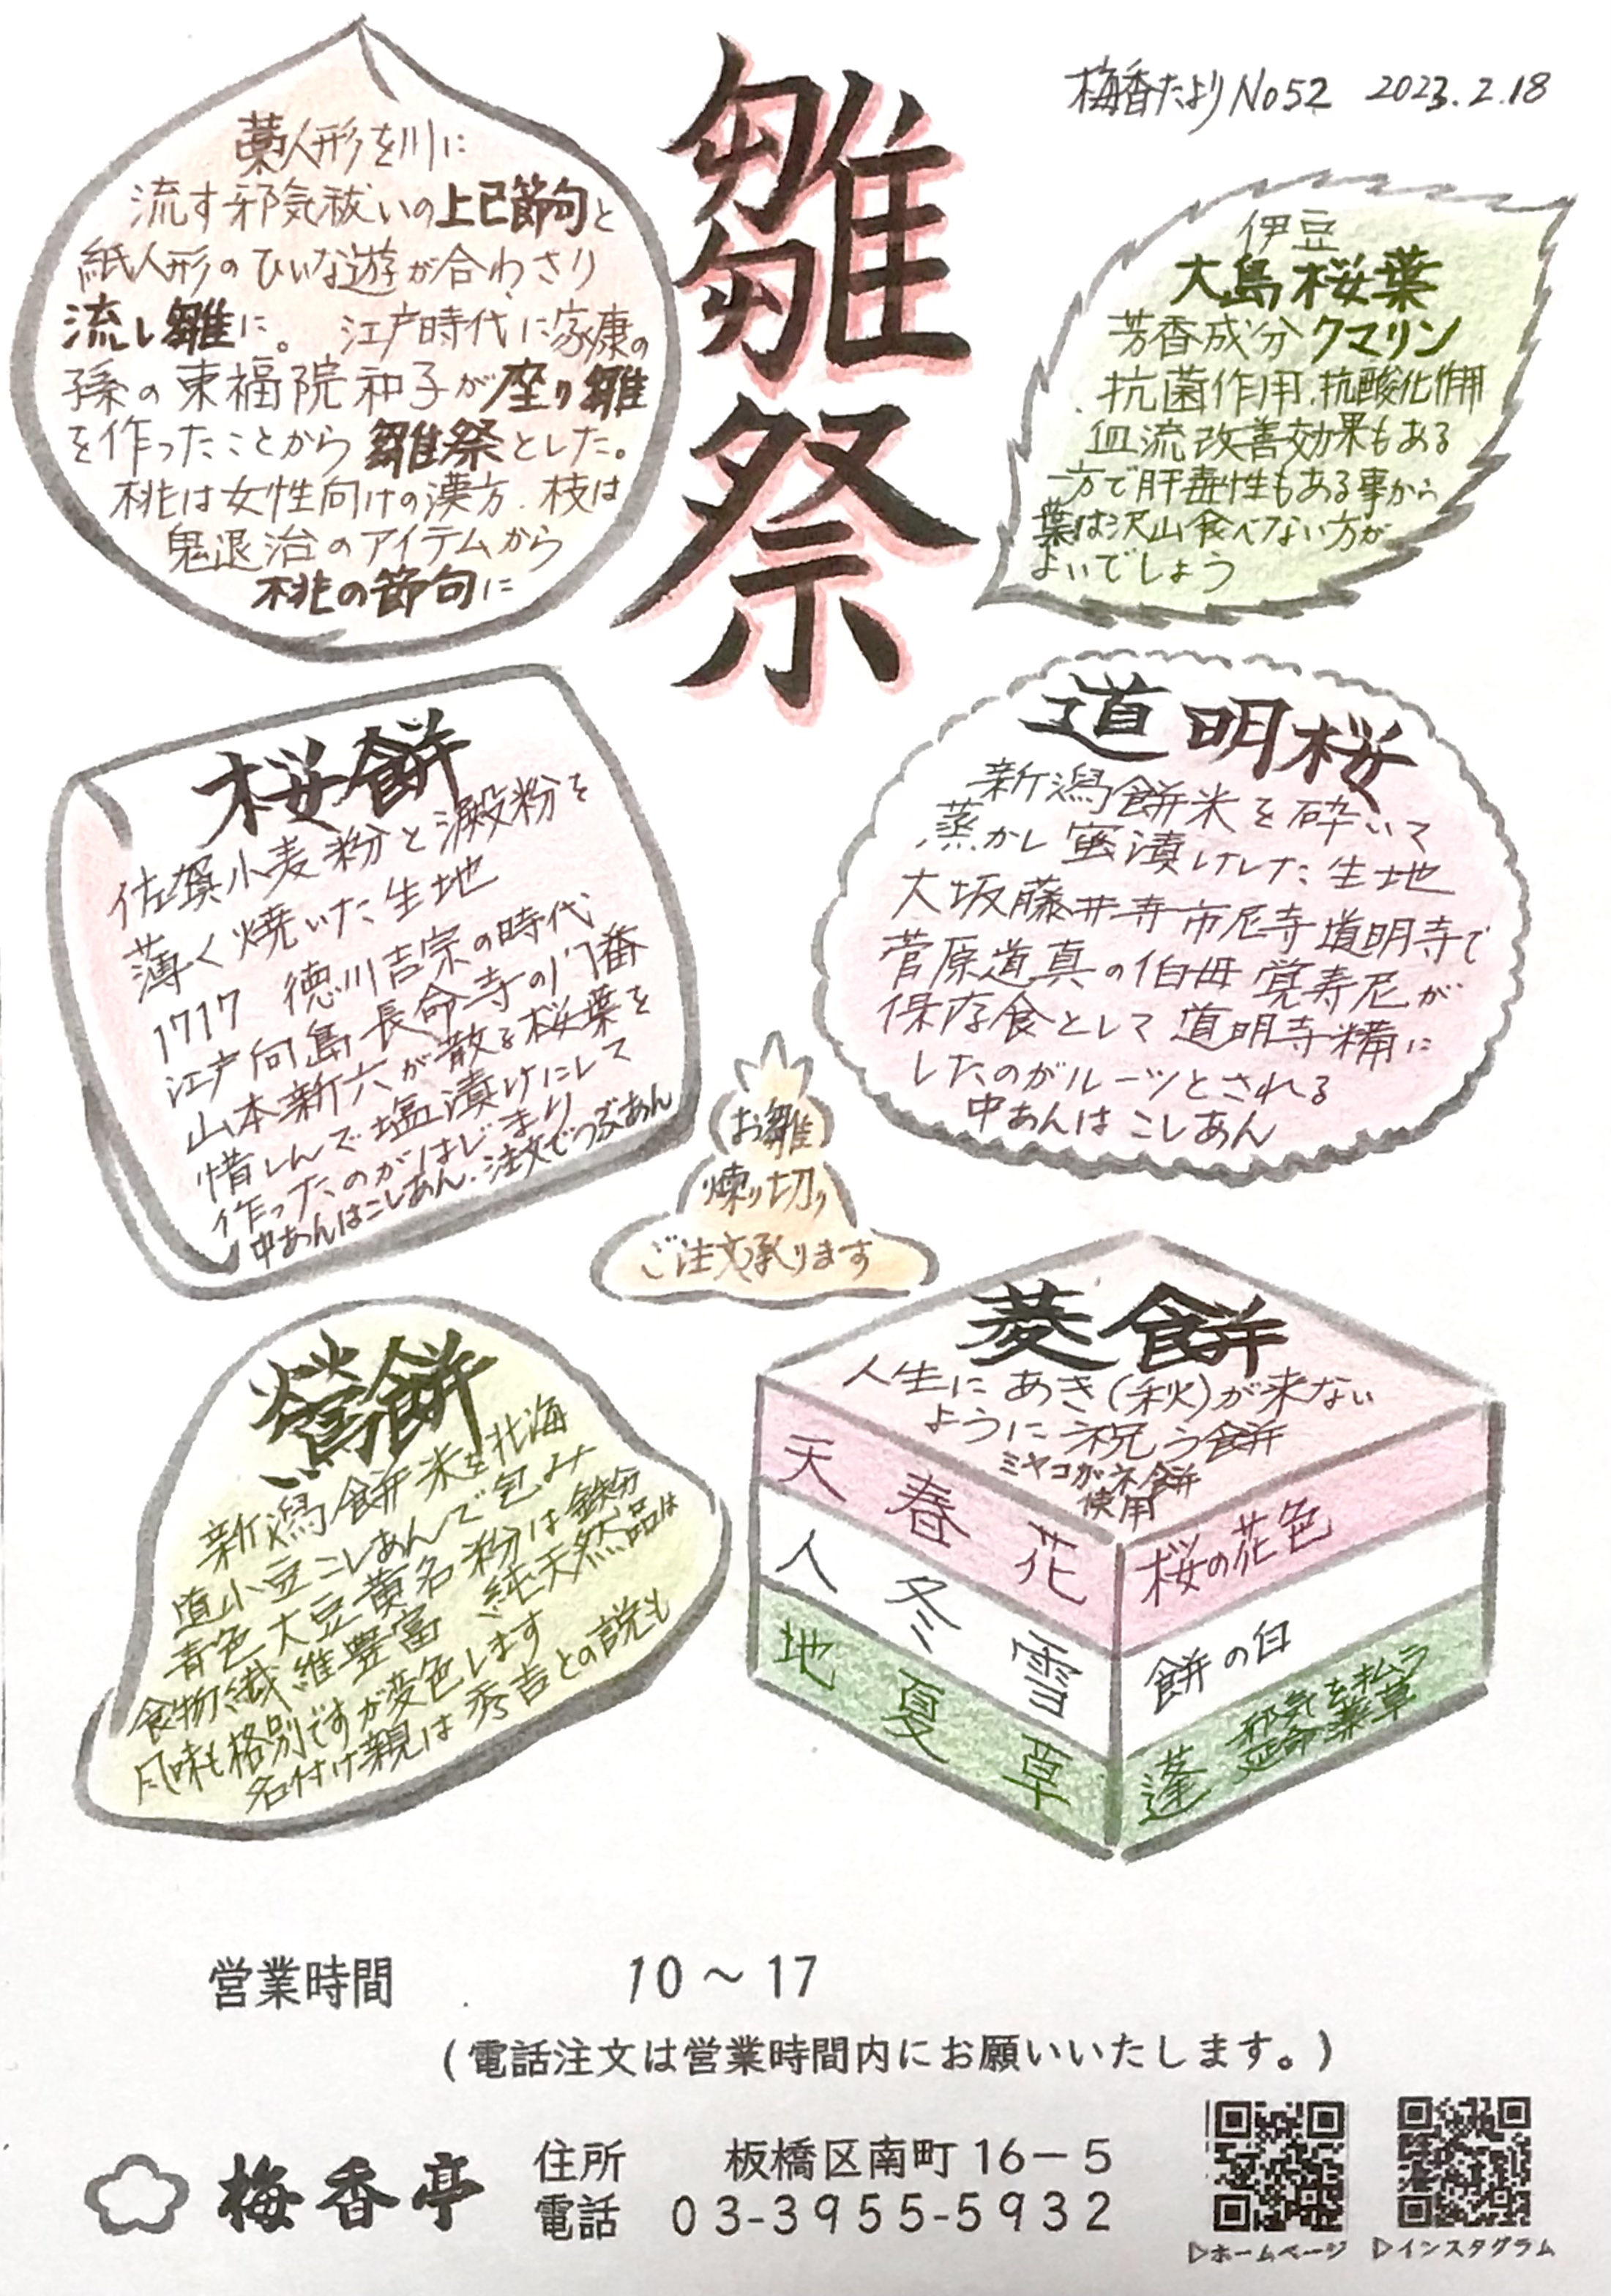 梅香たよりNo52 2023.2.18
雛祭
藁人形を川に
流す邪気祓いの上巳節句と
紙人形のひいな遊が合わさり
流し雛に。江戸時代に家康の
孫の東福院和子が座り雛
を作ったことから雛祭とした。
桃は女性向けの漢方.枝は
鬼退治のアイテムから
桃の節句に
伊豆
大島桜葉
芳香成分クマリン
抗菌作用.抗酸化作用
血流改善効果もある
一方で肝毒性もある事から
葉は沢山食べない方が
よいでしょう
桜餅
佐賀小麦粉と澱粉を
薄く焼いた生地
1717 徳川吉宗の時代
江戸向島長命寺の門番
山本新六が散る桜葉を
惜しんで塩漬けにして
作ったのがはじまり
中あんはこしあん.注文でつぶあん
道明桜
新潟餅米を砕いて
蒸かし蜜漬けした生地
大坂藤井寺市尼寺道明寺で
菅原道真の伯母覚寿尼が
保存食として道明寺糒に
したのがルーツとされる
中あんはこしあん
お雛
煉り切り
ご注文承ります
鶯餅
新潟餅米を北海
道小豆こしあんで包み
青色大豆黄名粉は鉄分
食物繊維豊富 純天然品は
風味も格別ですが変色します
名付け親は秀吉との説も
菱餅
人生にあき(秋)が来ない
ように祝う餅
ミヤコガネ餅
使用
天 春 花
人 冬 雪
地 夏 草
桜の花色
餅の白
蓬 邪気を払う
延命薬草
営業時間 10～17
(電話注文は営業時間内にお願いいたします。)
梅香亭
住所 板橋区南町16－5
電話 03-3955-5932
▷ホームページ ▷インスタグラム